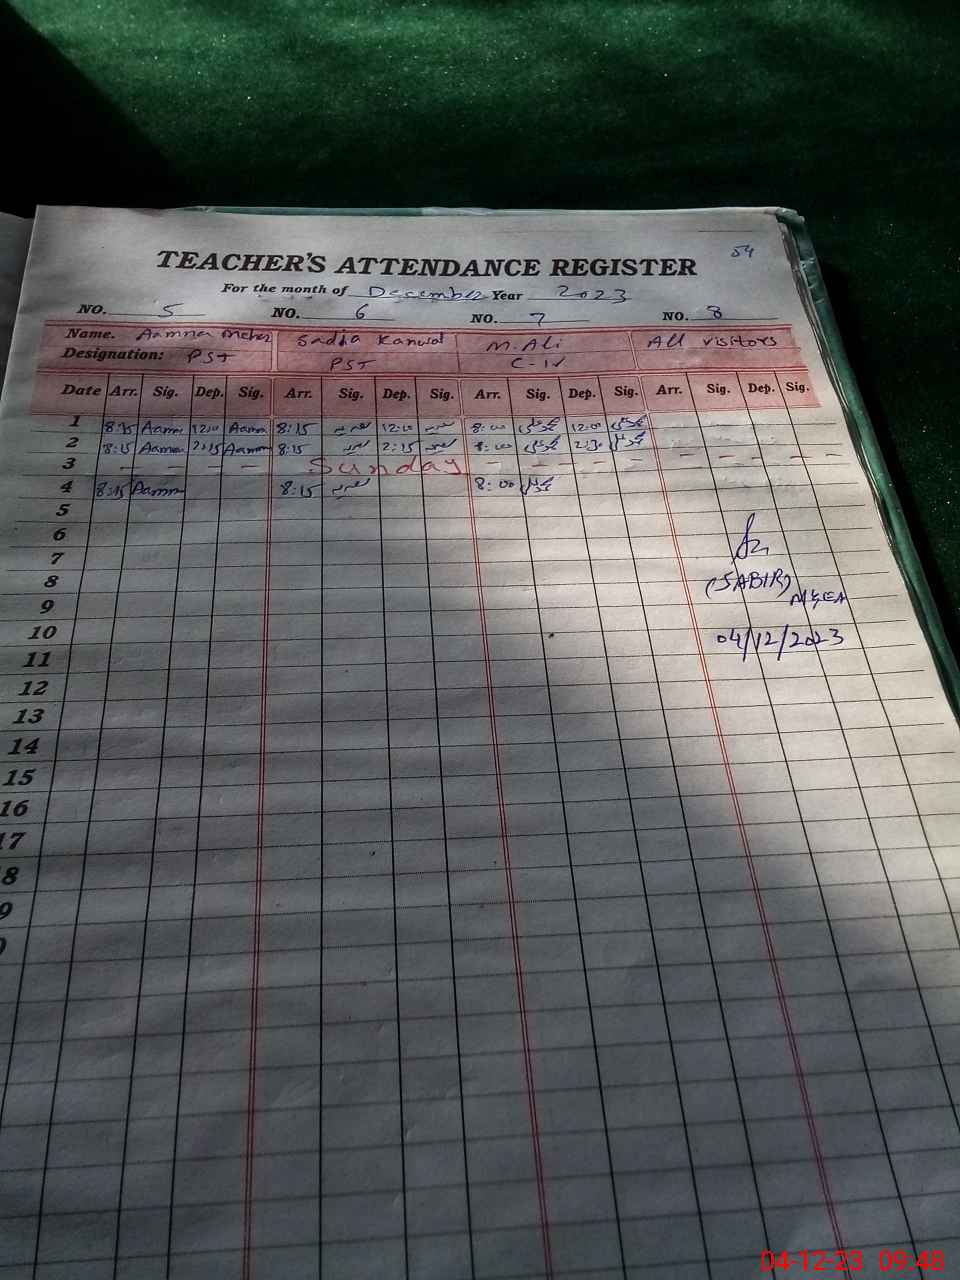 54
TEACHER'S ATTENDANCE REGISTER
For the month of December Year 2023
NO. 5 NO. 6 NO. 7 NO. 8
Name. Aamna Meher Sadia Kanwal M. Ali All visitors
Designation: PST PST C-IV
Date Arr. Sig. Dep. Sig. Arr. Sig. Dep. Sig. Arr. Sig. Dep. Sig. Arr. Sig. Dep. Sig.
1 8:15 Aamna 12:00 Aamna 8:15 12:00 8:00 12:00
2 8:15 Aamna 2:15 Aamna 8:15 2:15 8:00 2:30
3 - - - - Sunday - - - - - - - -
4 8:15 Aamna 8:15 8:00
5
6
7
8 (SABIR)
9 M&EA
10 04/12/2023
11
12
13
14
15
16
17
8
9
04-12-23 09:48